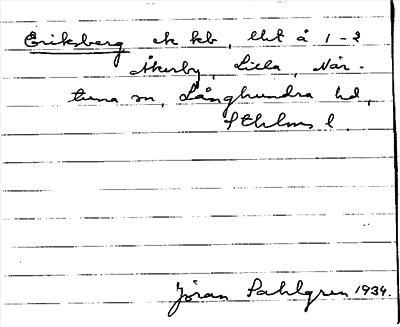 Eriksberg ek kb, tlht å 1-2
Åkerby, Lilla, När-
tuna sn, Långhundra hd,
Sthlms l.
Jöran Sahlgren 1934.